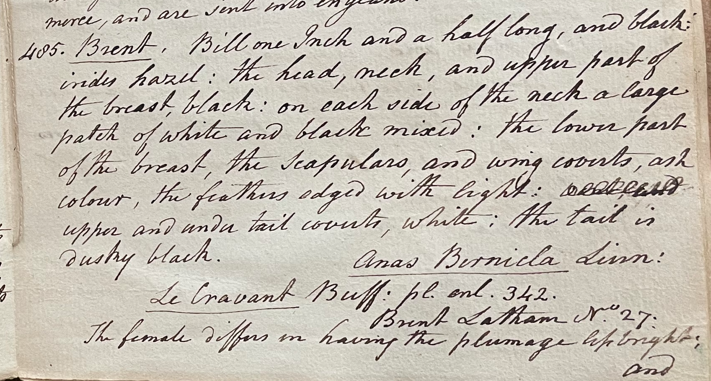 merce, and are sent into England.
485. Brent. Bill one Inch and a half long, and black:
irides hazel: the head, neck, and upper part of
the breast, black: on each side of the neck a large
patch of white and black mixed: the lower part
of the breast, the scapulars, and wing coverts, ash
colour, the feathers edged with light:
upper and under tail coverts, white: the tail is
dusky black.
Anas Bernicla Linn:
Le Cravant Buff: pl. enl. 342.
Brent Latham No 27.
The female differs in having the plumage less bright;
and